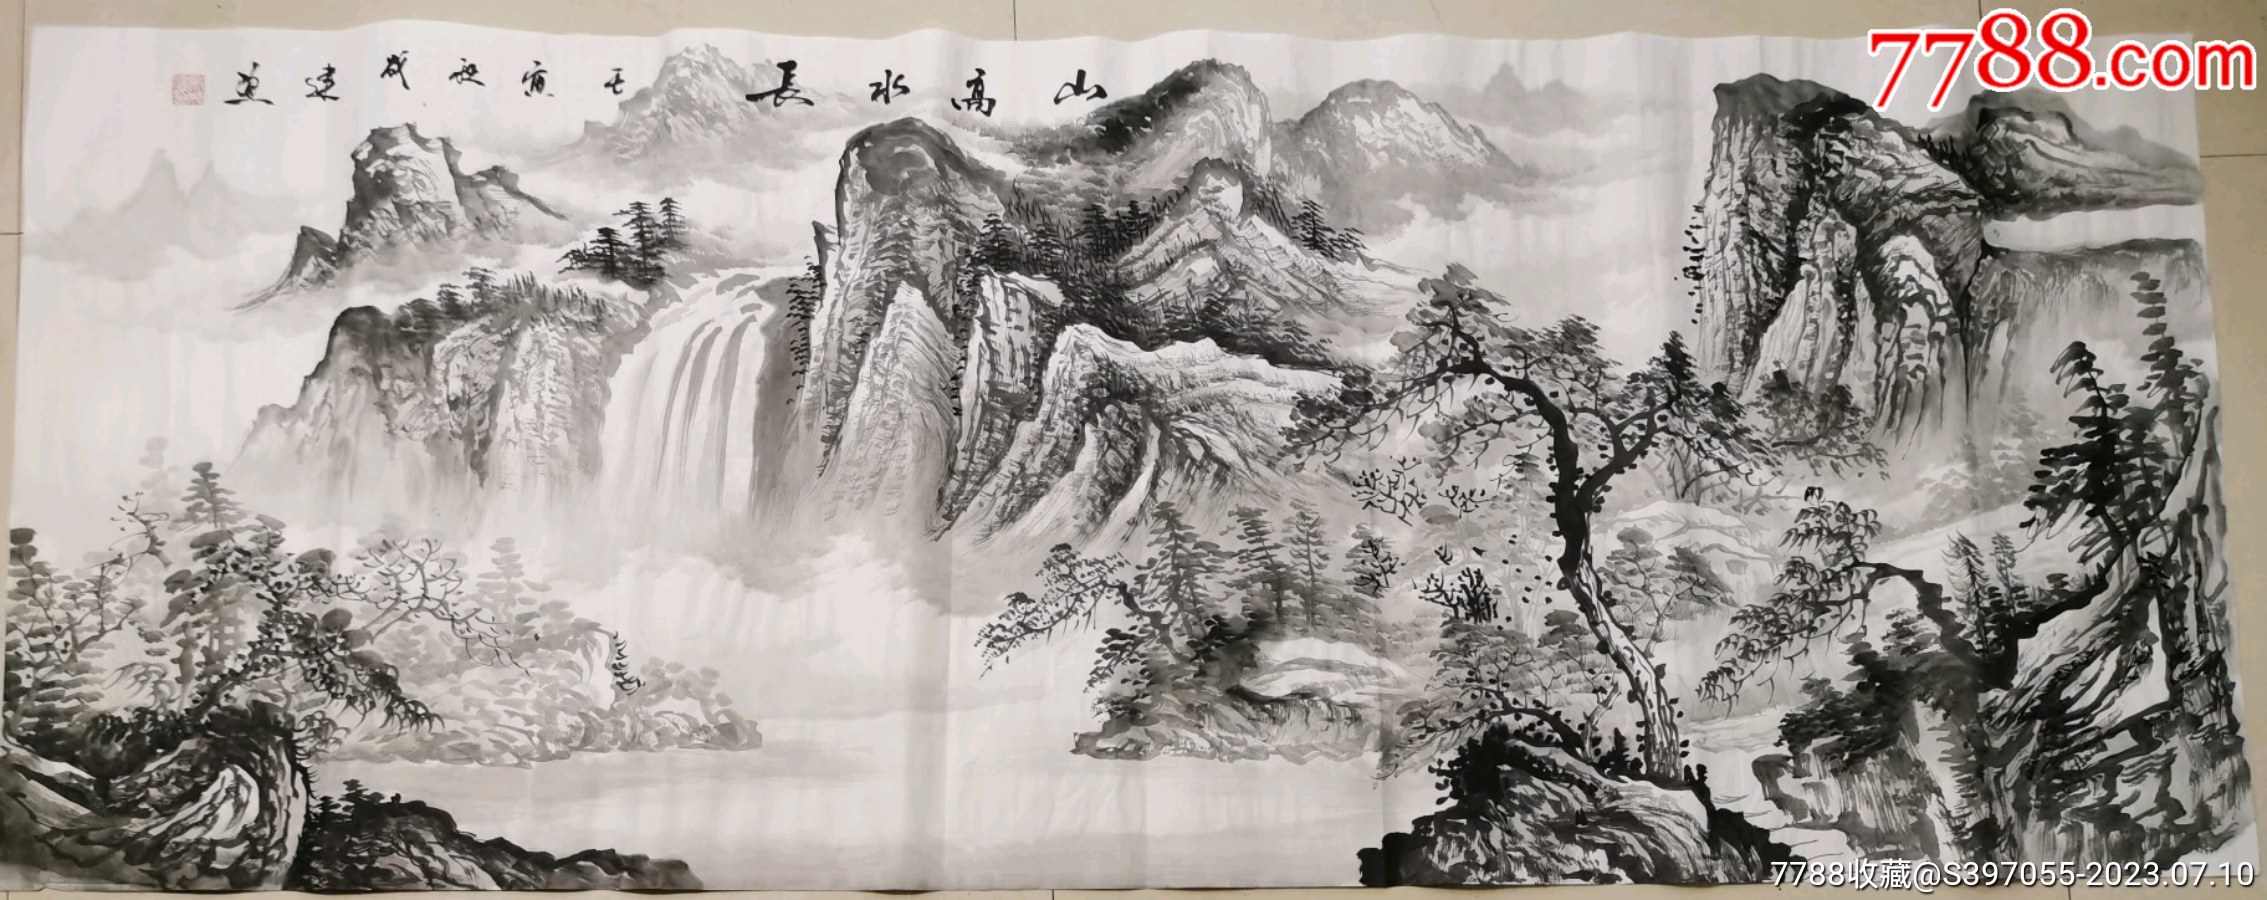 7788.com
山高水長 壬寅 成建
7788收藏@S397055-2023.07.10